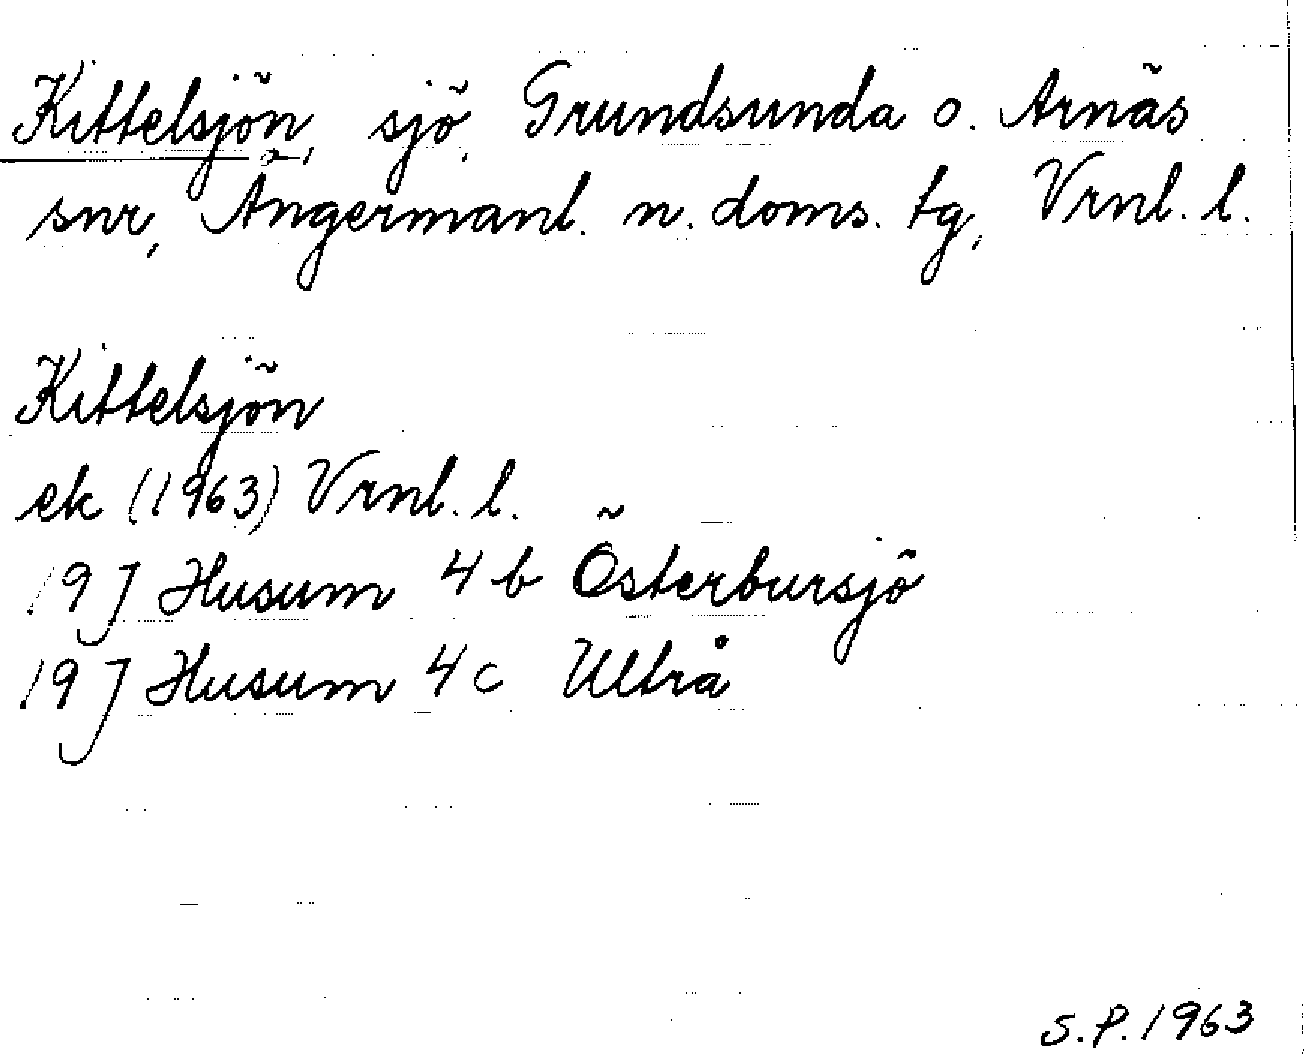 Kittelsjön, sjö, Grundsunda o. Arnäs
snr, Ångermanl. n. doms. tg, Vrnl. l.
Kittelsjön
ek (1963) Vrnl. l.
19 J Husum 4 b Österbursjö
19 J Husum 4 c Ultrå
S.P. 1963